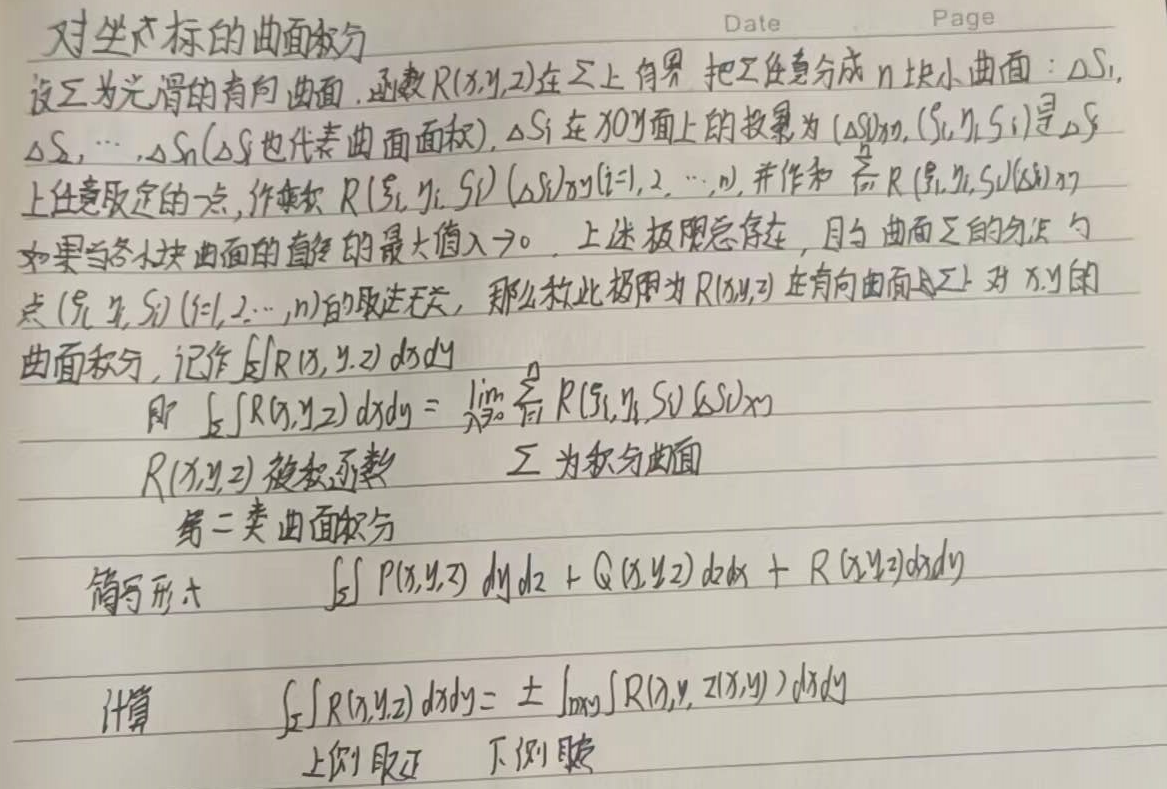 Date Page
对坐标的曲面积分
设Σ为光滑的有向曲面,函数R(x,y,z)在Σ上有界 把Σ任意分成n块小曲面:ΔS₁,
ΔS₂,⋯,ΔSn(ΔSi也代表曲面面积),ΔSi在xOy面上的投影为(ΔSi)xy,(ξi,ηi,ζi)是ΔSi
上任意取定的一点,作乘积 R(ξi,ηi,ζi)(ΔSi)xy(i=1,2,⋯,n),并作和 Σⁿᵢ₌₁ R(ξi,ηi,ζi)(ΔSi)xy
如果当各小块曲面的直径的最大值λ→0,上述极限总存在,且与曲面Σ的分法与
点(ξi,ηi,ζi)(i=1,2,⋯,n)的取法无关,那么称此极限为R(x,y,z)在有向曲面Σ上对x,y的
曲面积分,记作∫∫Σ R(x,y,z)dxdy
即 ∫∫Σ R(x,y,z)dxdy = lim λ→0 Σⁿᵢ₌₁ R(ξi,ηi,ζi)(ΔSi)xy
R(x,y,z)被积函数 Σ为积分曲面
第二类曲面积分
简写形式 ∫∫Σ P(x,y,z)dydz + Q(x,y,z)dzdx + R(x,y,z)dxdy
计算 ∫∫Σ R(x,y,z)dxdy = ± ∫∫Dxy R(x,y,z(x,y))dxdy
上侧取正 下侧取负